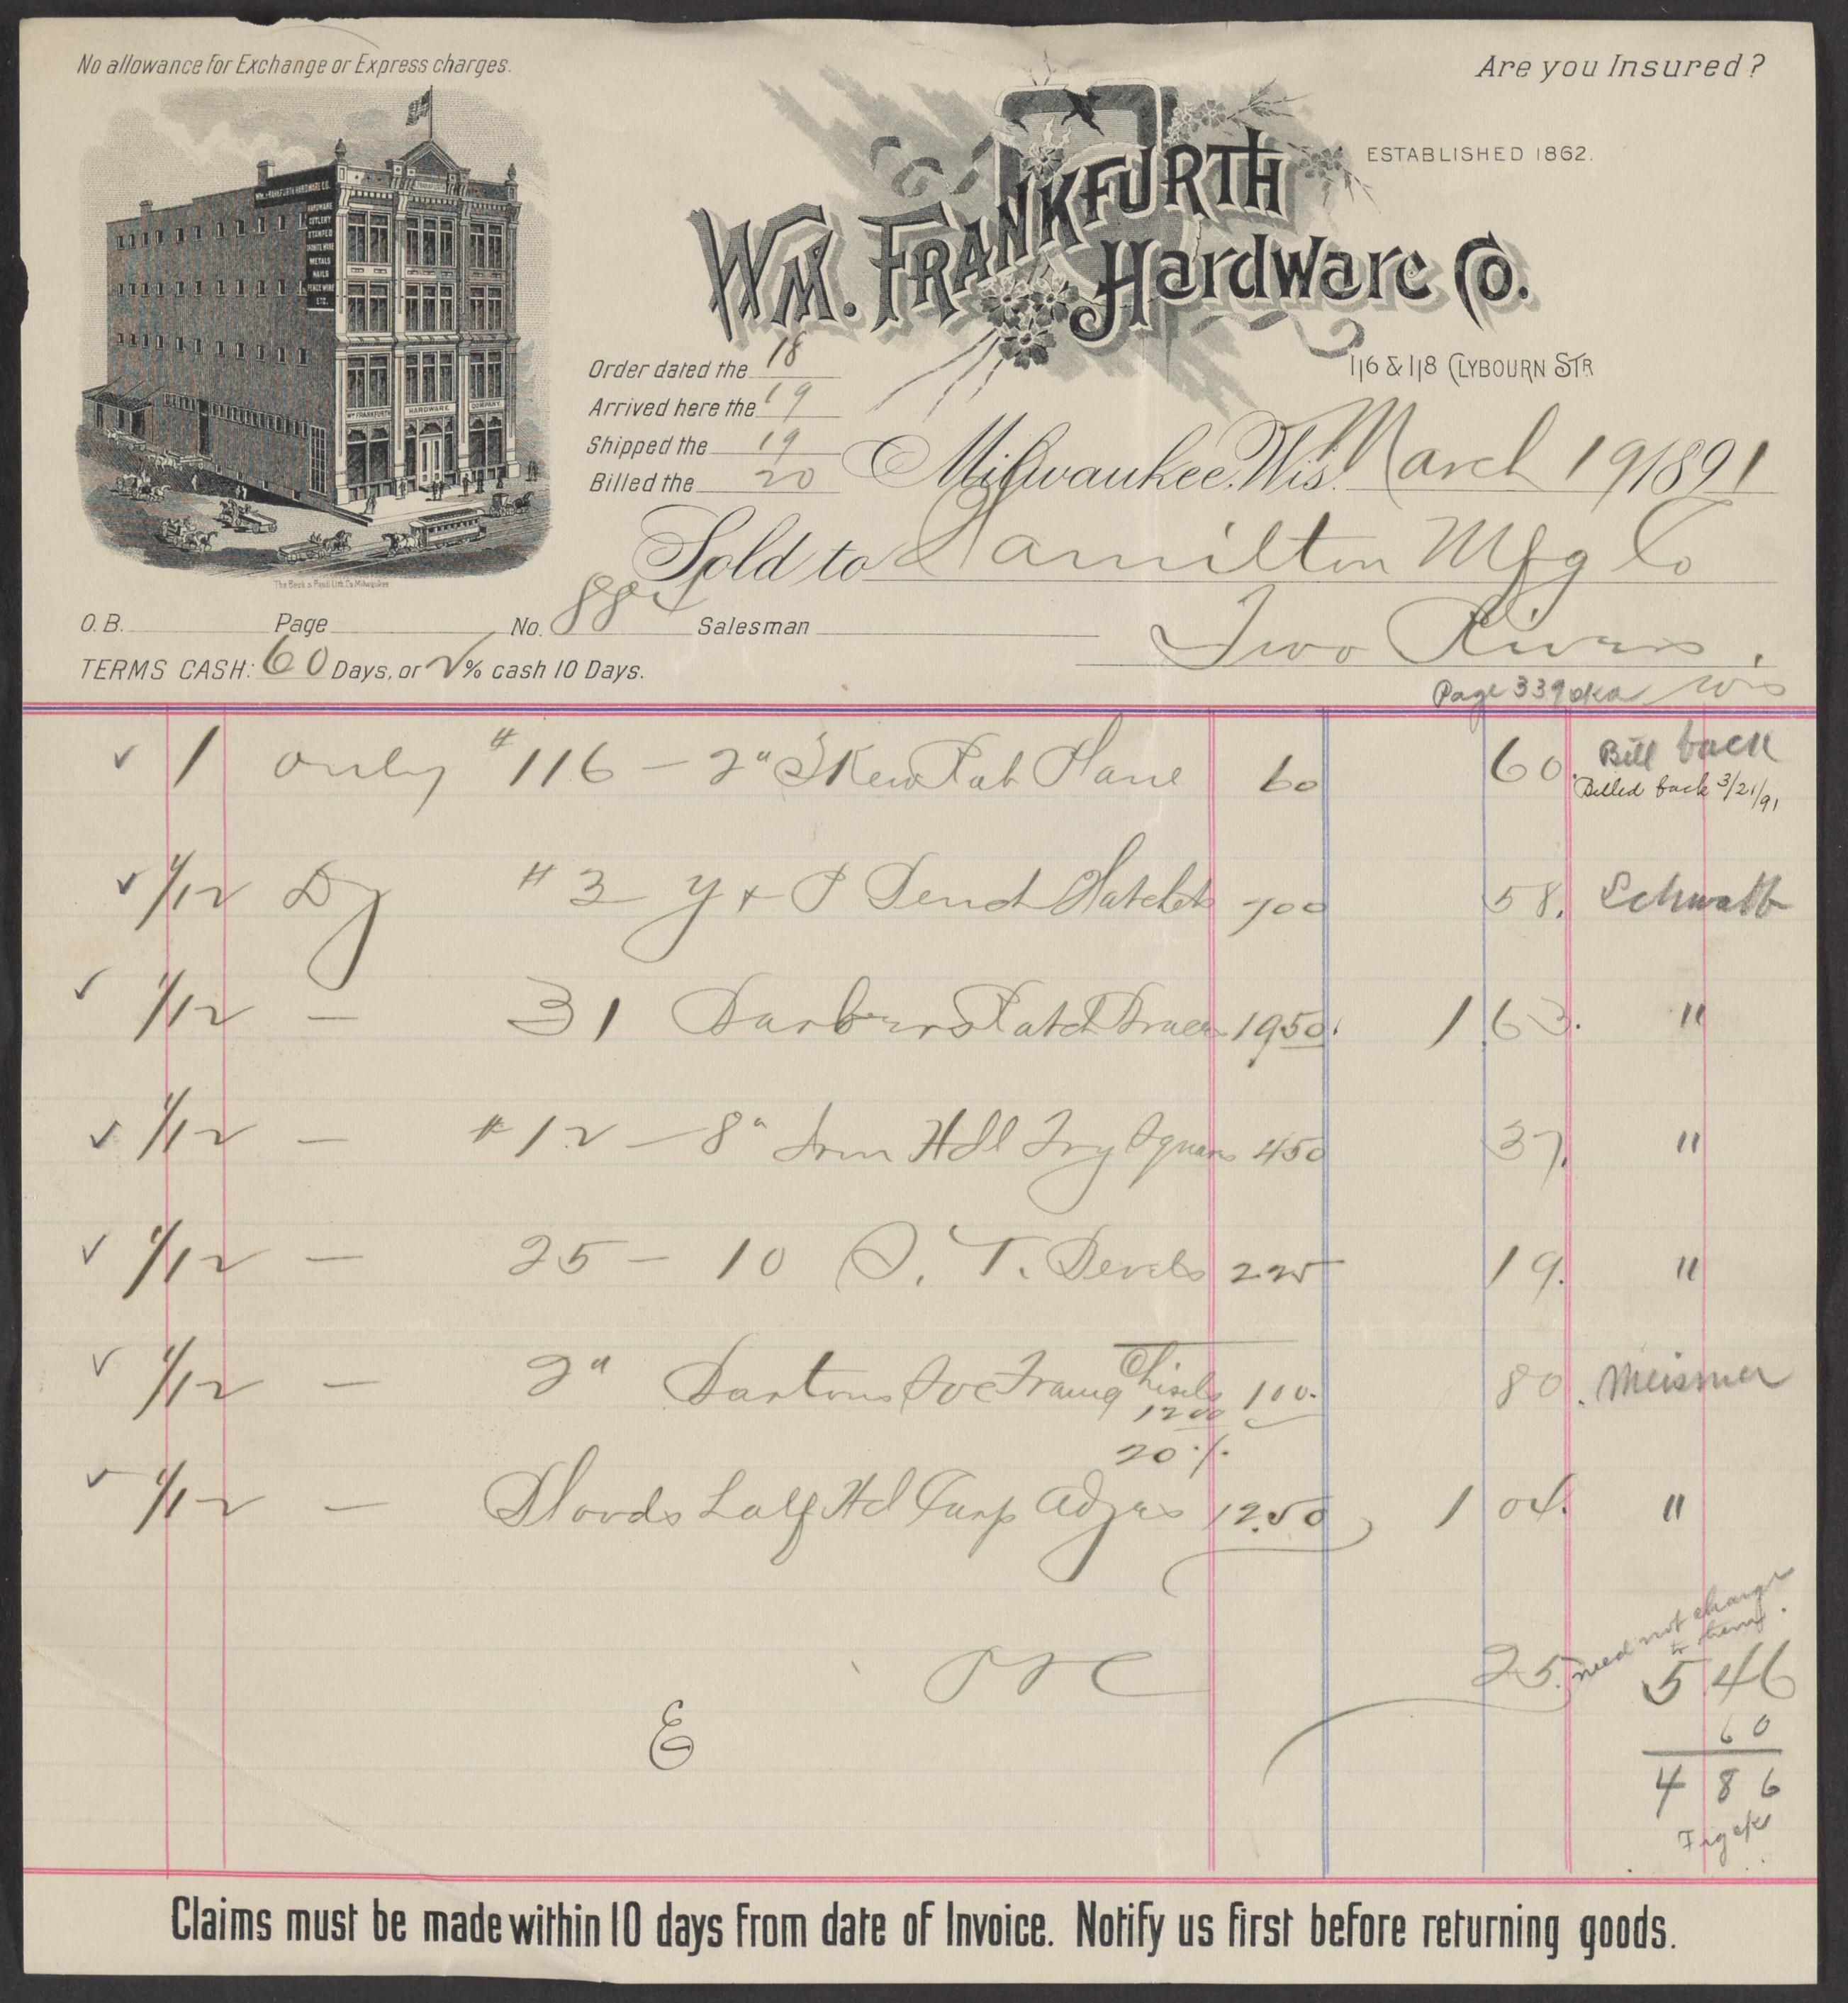 No allowance for Exchange or Express charges.
Are you Insured?
ESTABLISHED 1862.
WM. FRANKFURTH
Hardware Co.
116 & 118 CLYBOURN STR
WM. FRANKFURTH HARDWARE CO.
HARDWARE
CUTLERY
STAMPED
GRANITE WARE
METALS
NAILS
FENCE WIRE
ETC.
WM FRANKFURTH HARDWARE COMPANY.
The Beck & Pauli Lith. Co. Milwaukee
Order dated the 18
Arrived here the 19
Shipped the 19
Billed the 20
Milwaukee, Wis. March 19 1891
Sold to Hamilton Mfg Co
Two Rivers,
Wis
O.B. Page No. 884 Salesman
TERMS CASH: 60 Days, or 2% cash 10 Days.
Page 339 oka
✓ 1 only #116 – 2" Skew Rab Plane 60 60. Bill back
Billed back 3/21/91
✓ 1/12 Dz #3 Y & P Bench Hatchets 700 58. Schwatb
✓ 1/12 – 31 Barbers Ratch Braces 1950. 1 63. "
✓ 1/12 – #12 – 8" Iron Hdl Try Squares 450 37. "
✓ 1/12 – 25 – 10 S. T. Bevels 225 19. "
✓ 1/12 – 2" Bartons Soc Framg Chisels 100. 80. Meisner
1200
20 %
✓ 1/12 – Bloods Half Hd Carp Adzes 12.50 1 04. "
need not charge
to them.
25. 5.46
E
60
4 86
Fig ok
Claims must be made within 10 days from date of Invoice. Notify us first before returning goods.